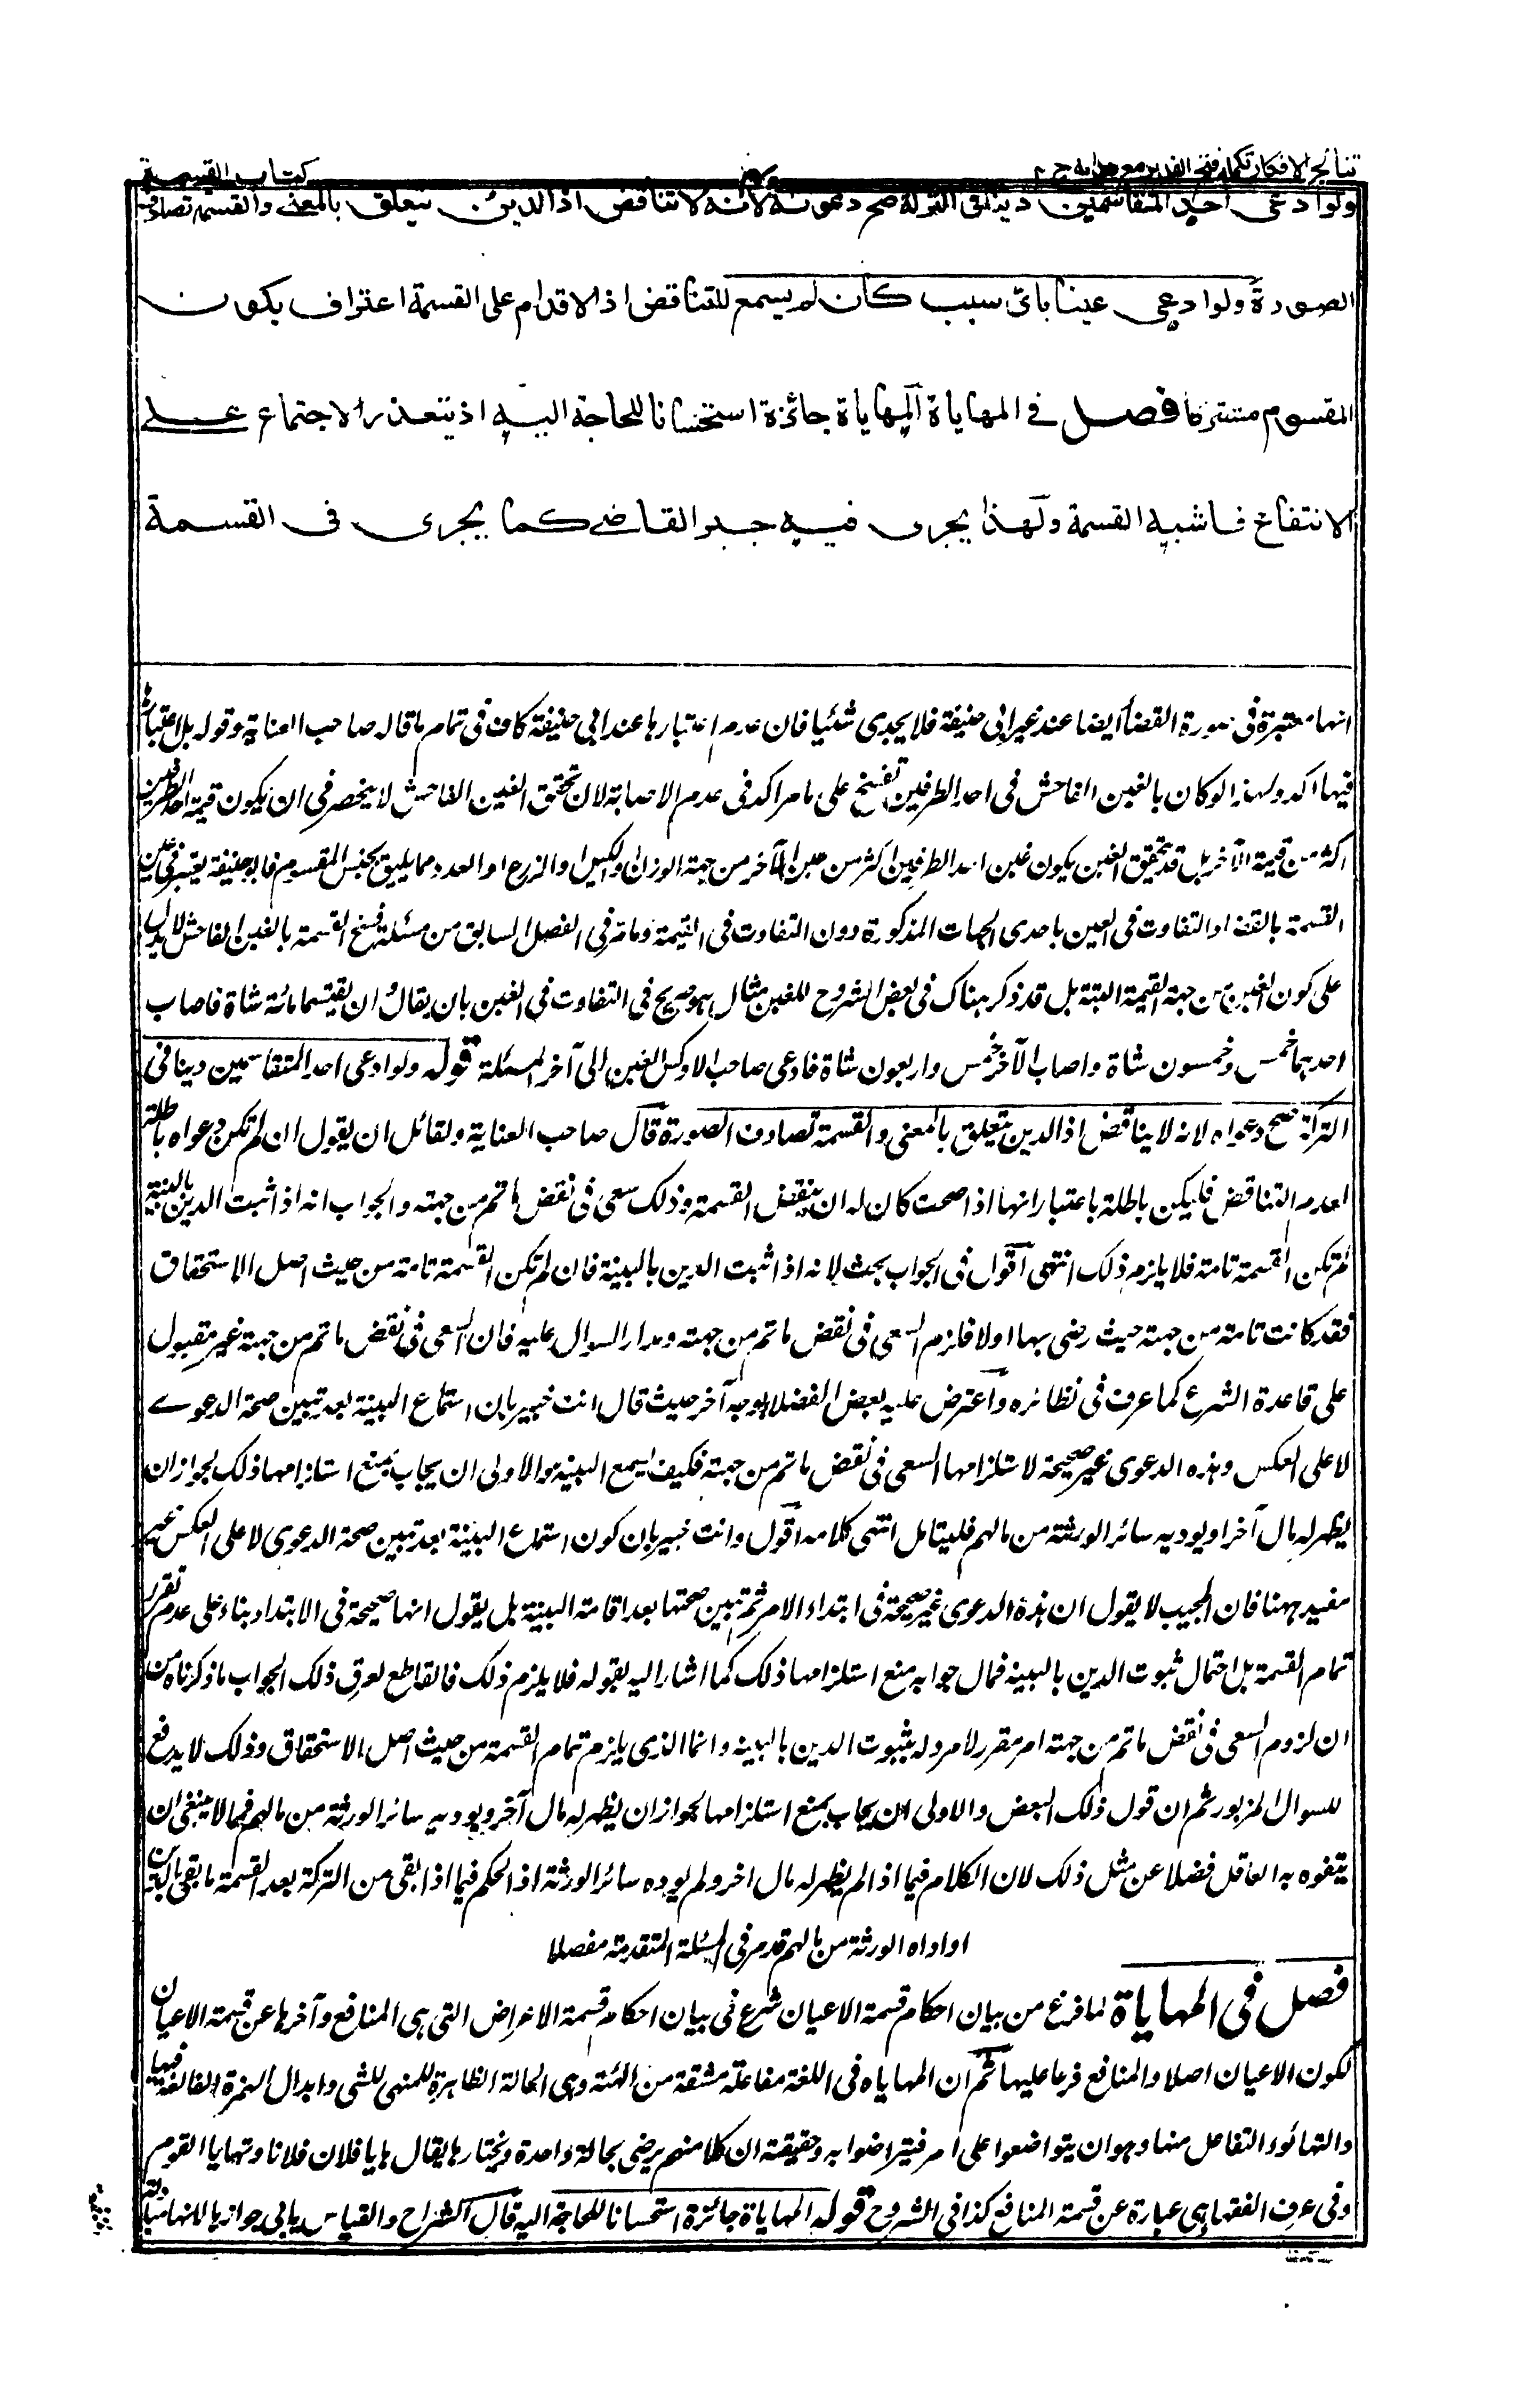 نتائج الافكار تكملة فتح القدير مع هدايه ج ٤
كتاب القسمة
ولو ادعى احد المتقاسمين دينا في التركة صح دعواه لانه لا تناقض اذ الدين يتعلق بالمعنى والقسمة تصادف
الصورة ولو ادعى عينا باى سبب كان لم يسمع للتناقض اذ الاقدام على القسمة اعتراف بكون
المقسوم مشتركا فصل في المهاياة المهاياة جائزة استحسانا للحاجة اليه اذ يتعذر الاجتماع على
الانتفاع فاشبه القسمة ولهذا يجرى فيه جبر القاضي كما يجرى فى القسمة
انها معتبرة فى صورة القضاء ايضا عند غير ابى حنيفة فلا يجدى شيئا فان عدم اعتبارها عند ابى حنيفة كاف فى تمام ما قاله صاحب العناية وقوله بل اعتبارها
فيها اكد ولهذا لو كان بالغبن الفاحش فى احد الطرفين تفسخ على ما مر اكد فى عدم الاصابة لان تحقق الغبن الفاحش لا ينحصر فى ان يكون قيمة احد الطرفين
اكثر من قيمة الآخر بل قد يتحقق الغبن بكون غبن احد الطرفين اكثر من عين الآخر من جهة الوزن والكيل او الذرع او العدد مما يليق بجنس المقسوم فابو حنيفة يعتبر فى غبن
القسمة بالقضاء والتفاوت فى العين باحدى الجهات المذكورة دون التفاوت فى القيمة وما مر فى الفصل السابق من مسئلة فسخ القسمة بالغبن الفاحش لا يدل
على كون الغبن من جهة القيمة البتة بل قد ذكر هناك فى بعض الشروح للغبن مثال هو صريح فى التفاوت فى الغبن بان يقال ان يقتسما مائة شاة فاصاب
احدهما خمس وخمسون شاة واصاب الآخر خمس واربعون شاة فادعى صاحب الاوكس الغبن الى آخر المسئلة قوله ولو ادعى احد المتقاسمين دينا فى
التركة صح دعواه لانه لا يناقض اذ الدين يتعلق بالمعنى والقسمة تصادف الصورة قال صاحب العناية ولقائل ان يقول ان لم تكن دعواه باطلة
لعدم التناقض فليكن باطلة باعتبار انها اذا صحت كان له ان ينقض القسمة وذلك سعى فى نقض ما تم من جهته والجواب انه اذا ثبت الدين بالبينة
لم تكن القسمة تامة فلا يلزم ذلك انتهى اقول فى الجواب بحث لانه اذا ثبت الدين بالبينة فان لم تكن القسمة تامة من حيث اصل الاستحقاق
فقد كانت تامة من جهته حيث رضى بها اولا فلزم السعى فى نقض ما تم من جهته ومدار السوال عليه فان السعى فى نقض ما تم من جهته غير مقبول
على قاعدة الشرع كما عرف فى نظائره واعترض عليه بعض الفضلاء بوجه آخر حيث قال انت خبير بان استماع البينة بعد تبين صحة الدعوے
لا على العكس وهذه الدعوى غير صحيحة لاستلزامها السعى فى نقض ما تم من جهته فكيف يسمع البينة والاولى ان يجاب بمنع استلزامها ذلك لجواز ان
يظهر له مال آخر او يوديه سائر الورثة من مالهم فليتامل انتهى كلامه اقول وانت خبير بان كون استماع البينة بعد تبين صحة الدعوى لا على العكس غير
مفيد ههنا فان المجيب لا يقول ان هذه الدعوى غير صحيحة فى ابتداء الامر ثم تبين صحتها بعد اقامة البينة بل يقول انها صحيحة فى الابتداء بناء على عدم تقرر
تمام القسمة بل احتمال ثبوت الدين بالبينة فمال جوابه منع استلزامها ذلك كما اشار اليه بقوله فلا يلزم ذلك فالقاطع لعرق ذلك الجواب ما ذكرناه من
ان لزوم السعى فى نقض ما تم من جهته امر مقرر لا مرد له بثبوت الدين بالبينة وانما الذى يلزم تمام القسمة من حيث اصل الاستحقاق وذلك لا يدفع
السوال المزبور ثم ان قول ذلك البعض والاولى ان يجاب بمنع استلزامها لجواز ان يظهر له مال آخر ويوديه سائر الورثة من مالهم فمما لا ينبغى ان
يتفوه به العاقل فضلا عن مثل ذلك لان الكلام فيما اذا لم يظهر له مال اخر ولم يوده سائر الورثة اذ الحكم فيما اذا بقى من التركة بعد القسمة ما يفى بالدين
او اداه الورثة من مالهم قد مر فى المسئلة المتقدمة مفصلا
فصل فى المهاياة لما فرغ من بيان احكام قسمة الاعيان شرع فى بيان احكام قسمة الاعراض التى هى المنافع وآخرها عن قسمة الاعيان
لكون الاعيان اصلا والمنافع فرعا عليها ثم ان المهاياه فى اللغة مفاعلة مشتقة من الهيئة وهى الحالة الظاهرة للمتهيى للشى وابدال الهمزة الفا لغة فيها
والتهائو التفاعل منها وهو ان يتواضعوا على امر فيتراضوا به وحقيقته ان كلا منهم يرضى بحالة واحدة ويختارها يقال هايا فلان فلانا وتهايا القوم
وفى عرف الفقهاء هى عبارة عن قسمة المنافع كذا فى الشروح قوله المهاياة جائزة استحسانا للحاجة اليه قال الشراح والقياس يابى جوازها لانها مبادلة